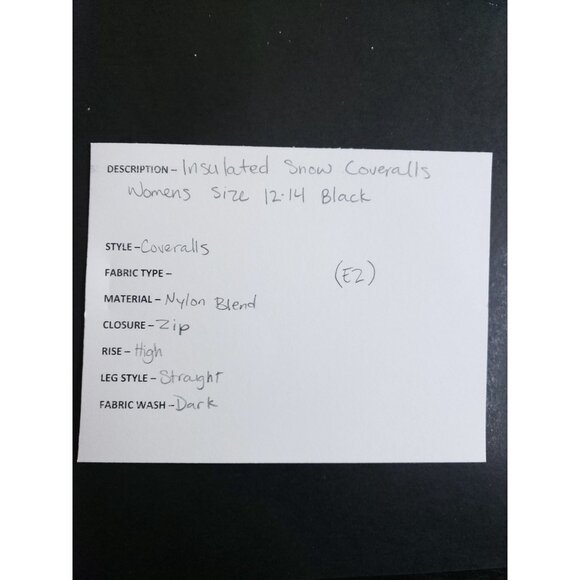 DESCRIPTION - Insulated Snow Coveralls
Womens Size 12-14 Black
STYLE - Coveralls
FABRIC TYPE -
(EZ)
MATERIAL - Nylon Blend
CLOSURE - Zip
RISE - High
LEG STYLE - Straight
FABRIC WASH - Dark